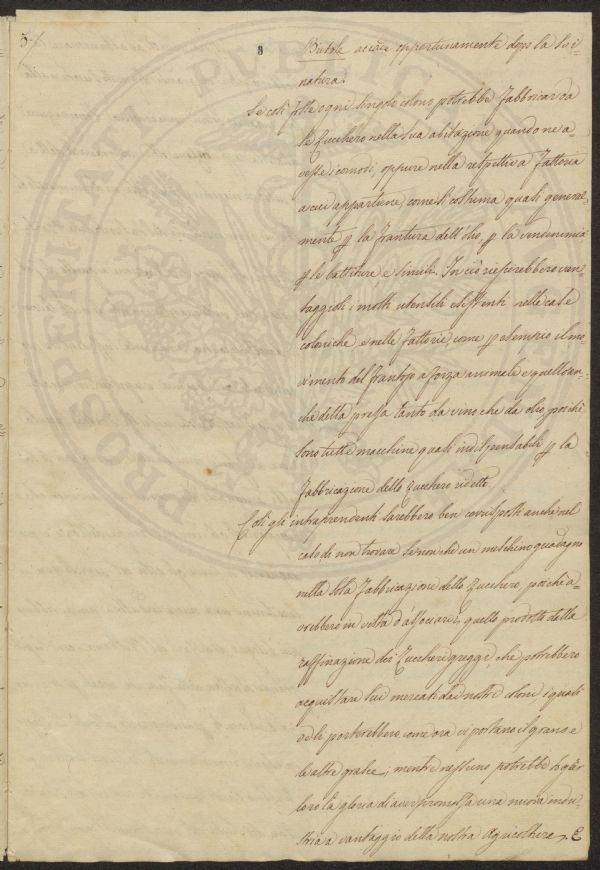 3/
8
Bietole acciò opportunamente dopo la Svi-
natura.
Se così fosse ogni singolo colono potrebbe fabbricar da
se Zucchero nella sua abitazione quando ne a-
vesse i comodi, oppure nella respettiva Fattoria
a cui appartiene, come si costuma quasi general-
mente p la frantura dell'olio, p la vendemmia
p le battiture e simili. In ciò riescirebbero van-
taggiosi i molti utensili esistenti nelle case
coloniche, e nelle Fattorie, come p esempio il mo-
vimento del frantojo a forza animale e quello an-
che della pressa tanto da vino che da olio, poiché
sono tutte macchine quasi indispensabili p la
fabbricazione dello Zucchero ridetto.
Così gli intraprendenti sarebbero ben corrisposti anche nel
caso, di non trovare se non che un meschino guadagno
nella sola fabbricazione dello Zucchero, poiché a-
vrebbero in vista d'associarsi, quello prodotto della
raffinazione dei Zuccheri greggi che potrebbero
acquistare sui mercati dai nostri coloni i quali
ve li porterebbero, come ora vi portano il grano e
le altre grasce; mentre nessuno potrebbe negar
loro la gloria di aver promossa una nuova indu-
stria a vantaggio della nostra Agricoltura. E
PROSPERITATI PUBLICAE